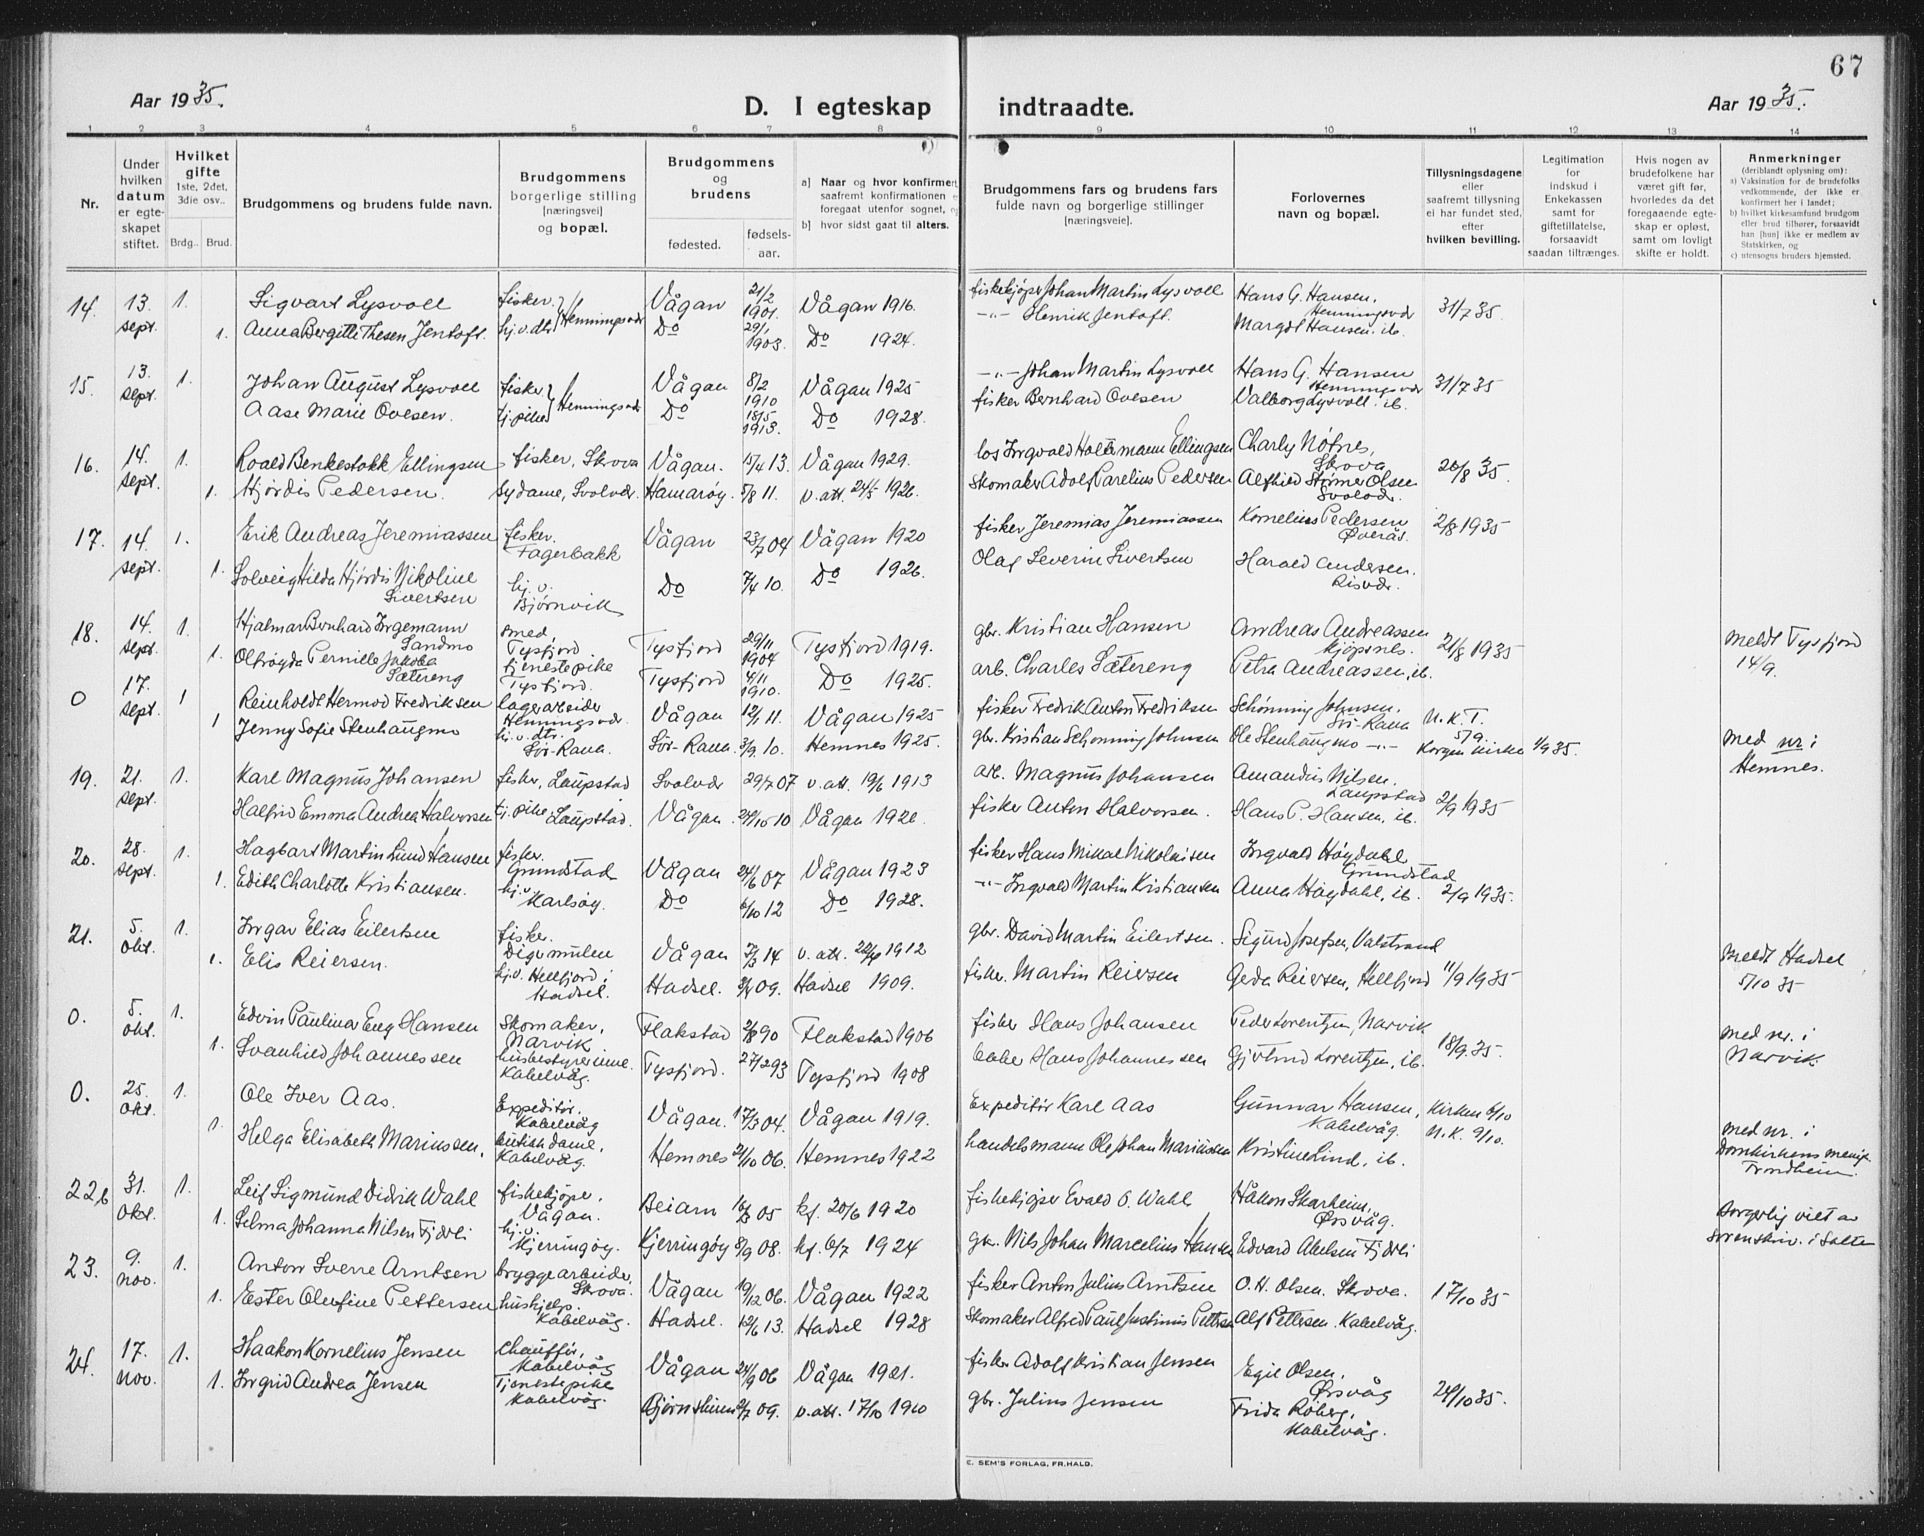 67
Aar 1935.
D. I egteskap indtraadte.
Aar 1935.
1 2 3 4 5 6 7 8 9 10 11 12 13 14
Nr.
Under hvilken datum er egte-skapet stiftet.
Hvilket gifte 1ste, 2det, 3die osv..
Brdg. Brud.
Brudgommens og brudens fulde navn.
Brudgommens borgerlige stilling [næringsvei] og bopæl.
Brudgommens og brudens
fødested. fødsels-aar.
a] Naar og hvor konfirmert
saafremt konfirmationen
foregaat utenfor sognet,
b] hvor sidst gaat til alters.
Brudgommens fars og brudens fars fulde navn og borgerlige stillinger [næringsvei].
Forlovernes navn og bopæl.
Tillysningsdagene eller saafremt tillysning ei har fundet sted, efter hvilken bevilling.
Legitimation for indskud i Enkekassen samt for giftetillatelse, forsaavidt saadan tiltrænges.
Hvis nogen av brudefolkene har været gift før, hvorledes da det foregaaende egte-skap er opløst, samt om lovligt skifte er holdt.
Anmerkninger
(deriblandt oplysning om):
a) Vaksination for de brudefolks vedkommende, der ikke er konfirmert her i landet;
b) hvilket kirkesamfund brudgom eller brud tilhører, forsaavidt han [hun] ikke er medlem av Statskirken, og
c) utensogns bruders hjemsted.
14. 13. sept. 1. Sigvart Lysvoll fisker Henningsvær Vågan 21/2 1901. Vågan 1916. fiskekjøper Johan Martin Lysvoll Hans G. Hansen, Henningsvær 31/7 35
1. Anna Bergitte Thesen Jentoft. hj.v.dtr. Do 29/1 1903. Do 1924. -"- Henrik Jentoft. Margot Hansen. ib.
15. 13. sept. 1. Johan August Lysvoll fisker Henningsvær Vågan 8/2 1910 Vågan 1925 -"- Johan Martin Lysvoll Hans G. Hansen Henningsvær 31/7 35
Aase Marie Ovesen. tj.pike Do 18/5 1913. Do 1928. fisker Bernhard Ovesen Valborg Lysvoll. ib.
16. 14. sept. 1. Roald Benkestokk Ellingsen fisker, Skrova Vågan. 15/4 13. Vågan 1929. los Ingvald Holtermann Ellingsen Charly Nøfnes, Skrova 20/8 35
1. Hjørdis Pedersen. sydame, Svolvær Hamarøy. 5/8 11. v. att. 21/5 1926. Skomaker Adolf Parelius Pedersen Alfhild Størmer Olsen Svolvær.
17. 14. sept. 1. Erik Andreas Jeremiassen fisker. Fagerbakk Vågan 23/7 04 Vågan 1920 fisker Jeremias Jeremiassen Kornelius Pedersen Øverås. 2/8 1935
1. Solveig Hilda Hjørdis Nikoline Sivertsen hj. v. Bjørnvik Do 7/4 10. Do 1926. Olaf Severin Sivertsen Harald Andersen. Risvær.
18. 14. sept. 1. Hjalmar Bernhard Ingemann Sandmo smed, Tysfjord Tysfjord 29/11 1904 Tysfjord 1919. gbr. Kristian Hansen Andreas Andreassen Kjøpsnes. 21/8 1935 meldt Tysfjord 14/9.
1. Olfrøyda Pernille Jakoba Sætereng tjenestepike Tysfjord. Tysfjord 4/11 1910. Do 1925. arb. Charles Sætereng Petra Andreassen, ib.
0 17. sept. 1 Reinholdt Hermod Fredriksen lagerarbeider Henningsvær. Vågan 12/1 11. Vågan 1925 fisker Fredrik Anton Fredriksen Schönning Johnsen, Sör-Rana N. K. T. 5/9.
1 Jenny Sofie Stenhaugmo hj. v. dtr. Sör-Rana. Sör-Rana. 3/9 10. Hemnes 1925. gbr. Kristian Schönning Johnsen Ole Stenhaugmo -"- Korgen kirke 1/9 35. med nr i Hemnes.
19. 21. sept. 1. Karl Magnus Johansen fisker, Laupstad Svolvær 29/7 07 v. att. 19/6 1913 arb. Magnus Johansen Amandus Nilsen. Laupstad 2/9 1935
Halfrid Emma Andrea Halvorsen tj. pike Laupstad. Vågan. 24/10 10 Vågan 192 fisker Anton Halvorsen. Hans P. Hansen, ib.
20. 28. sept. 1. Hagbart Martin Lund Hansen fisker. Grundstad Vågan 24/6 07 Vågan 1923 fisker Hans Mikal Nikolaisen Ingvald Høgdahl Grundstad 2/9 1935.
1. Edith Charlotte Kristiansen. hj. v Karlsøy. Do 6/10 12 Do 1928. -"- Ingvald Martin Kristiansen Anna Høgdahl, ib.
21. 5. okt. 1. Ingar Elias Eilertsen fisker. Digermulen Vågan 7/3 14 v. att. 1912 gbr. David Martin Eilertsen. Sigurd Josefsen, Valstrand 11/9 1935
1. Elis Reiersen. hj.v. Hellfjord i Hadsel. Hadsel. 09. Hadsel 1909. fisker. Martin Reiersen Gerda Reiersen, Hellfjord meldt Hadsel 5/10 35
0. 5. okt. 1. Edvin Paulinar Eng Hansen Skomaker, Narvik Flakstad 2/8 90 Flakstad 1906 fisker Hans Johansen Peder Lorentzen, Narvik 18/9 35. med nr. i Narvik.
1. Svanhild Johannessen husbestyrerinne. Kabelvåg. Tysfjord. 27/2 93 Tysfjord 1908 Hans Johannessen Gjertrud Lorentzen, ib.
0. 25. okt. 1. Ole Iver Aas. Expeditör. Kabelvåg Vågan. 17/3 04. Vågan 1919. Expeditör Karl Aas Gunnar Hansen, Kabelvåg. Kirken 6/10 N. K. 9/10.
1. Helga Elisabeth Mariussen, butikdame, Kabelvåg. Hemnes 21/10 06. Hemnes 1922 handelsmann Ole Johan Mariussen Kristine Lind, ib. med nr. i Domkirkens menigh. Trondheim.
22b 31. okt. 1. Leif Sigmund Didrik Wahl fiskekjøpe. Vågan. Beiarn 16/3 05 kf. 20/6 1920 fiskekjøper Evald O. Wahl Håkon Skarheim, Ørsvåg. Borgerlig viet av sorenskriv. i Salten
1. Selma Johanna Nilsen Fjærli hj. v Kjerringøy. Kjerringøy 8/9 08. kf. 6/7 1924 gbr. Nils Johan Marcelius Hansen Edvard Abelsen Fjærli
23. 9. nov. 1. Anton Sverre Arntsen bryggearbeider, Skrova. Vågan 19/12 06. Vågan 1922 fisker Anton Julius Arntsen O. H. Olsen. Skrova. 17/10 35
1. Ester Olufine Pettersen hushjelp. Kabelvåg. Hadsel. 12/6 13. Hadsel 1928 Skomaker Alfred Paul Justinius Pettersen Alf Pettersen. Kabelvåg.
24. 17. nov. 1. Haakon Kornelius Jensen Chauffør, Kabelvåg Vågan 24/9 06 Vågan 1921. fisker Adolf Kristian Jensen Egil Olsen, Ørsvåg 24/10 35.
1. Ingrid Andrea Jensen Tjenestepike Kabelvåg. 2/7 09. v. att. 17/10 19 gbr. Julius Jensen Frida Röberg, Kabelvåg.
E. SEM'S FORLAG, FR.HALD.